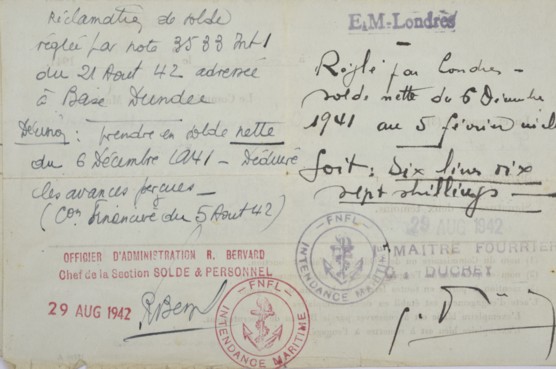 Réclamation de solde
réglée par note 3533 Int 1
du 21 Aout 42 adressée
à Base Dundee
Décision : prendre en solde nette
du 6 Décembre 1941 – Déduire
les avances perçues –
(Con financière du 5 Aout 42)
OFFICIER D'ADMINISTRATION R. BERVARD
Chef de la Section SOLDE & PERSONNEL
29 AUG 1942
R Ber
FNFL
INTENDANCE MARITIME
E.M-Londres
Réglé par Londres –
solde nette du 6 Décembre
1941 au 5 février
Soit : Dix livres dix
sept shillings –
FNFL
INTENDANCE MARITIME
29 AUG 1942
MAITRE FOURRIER
G. DUCREY